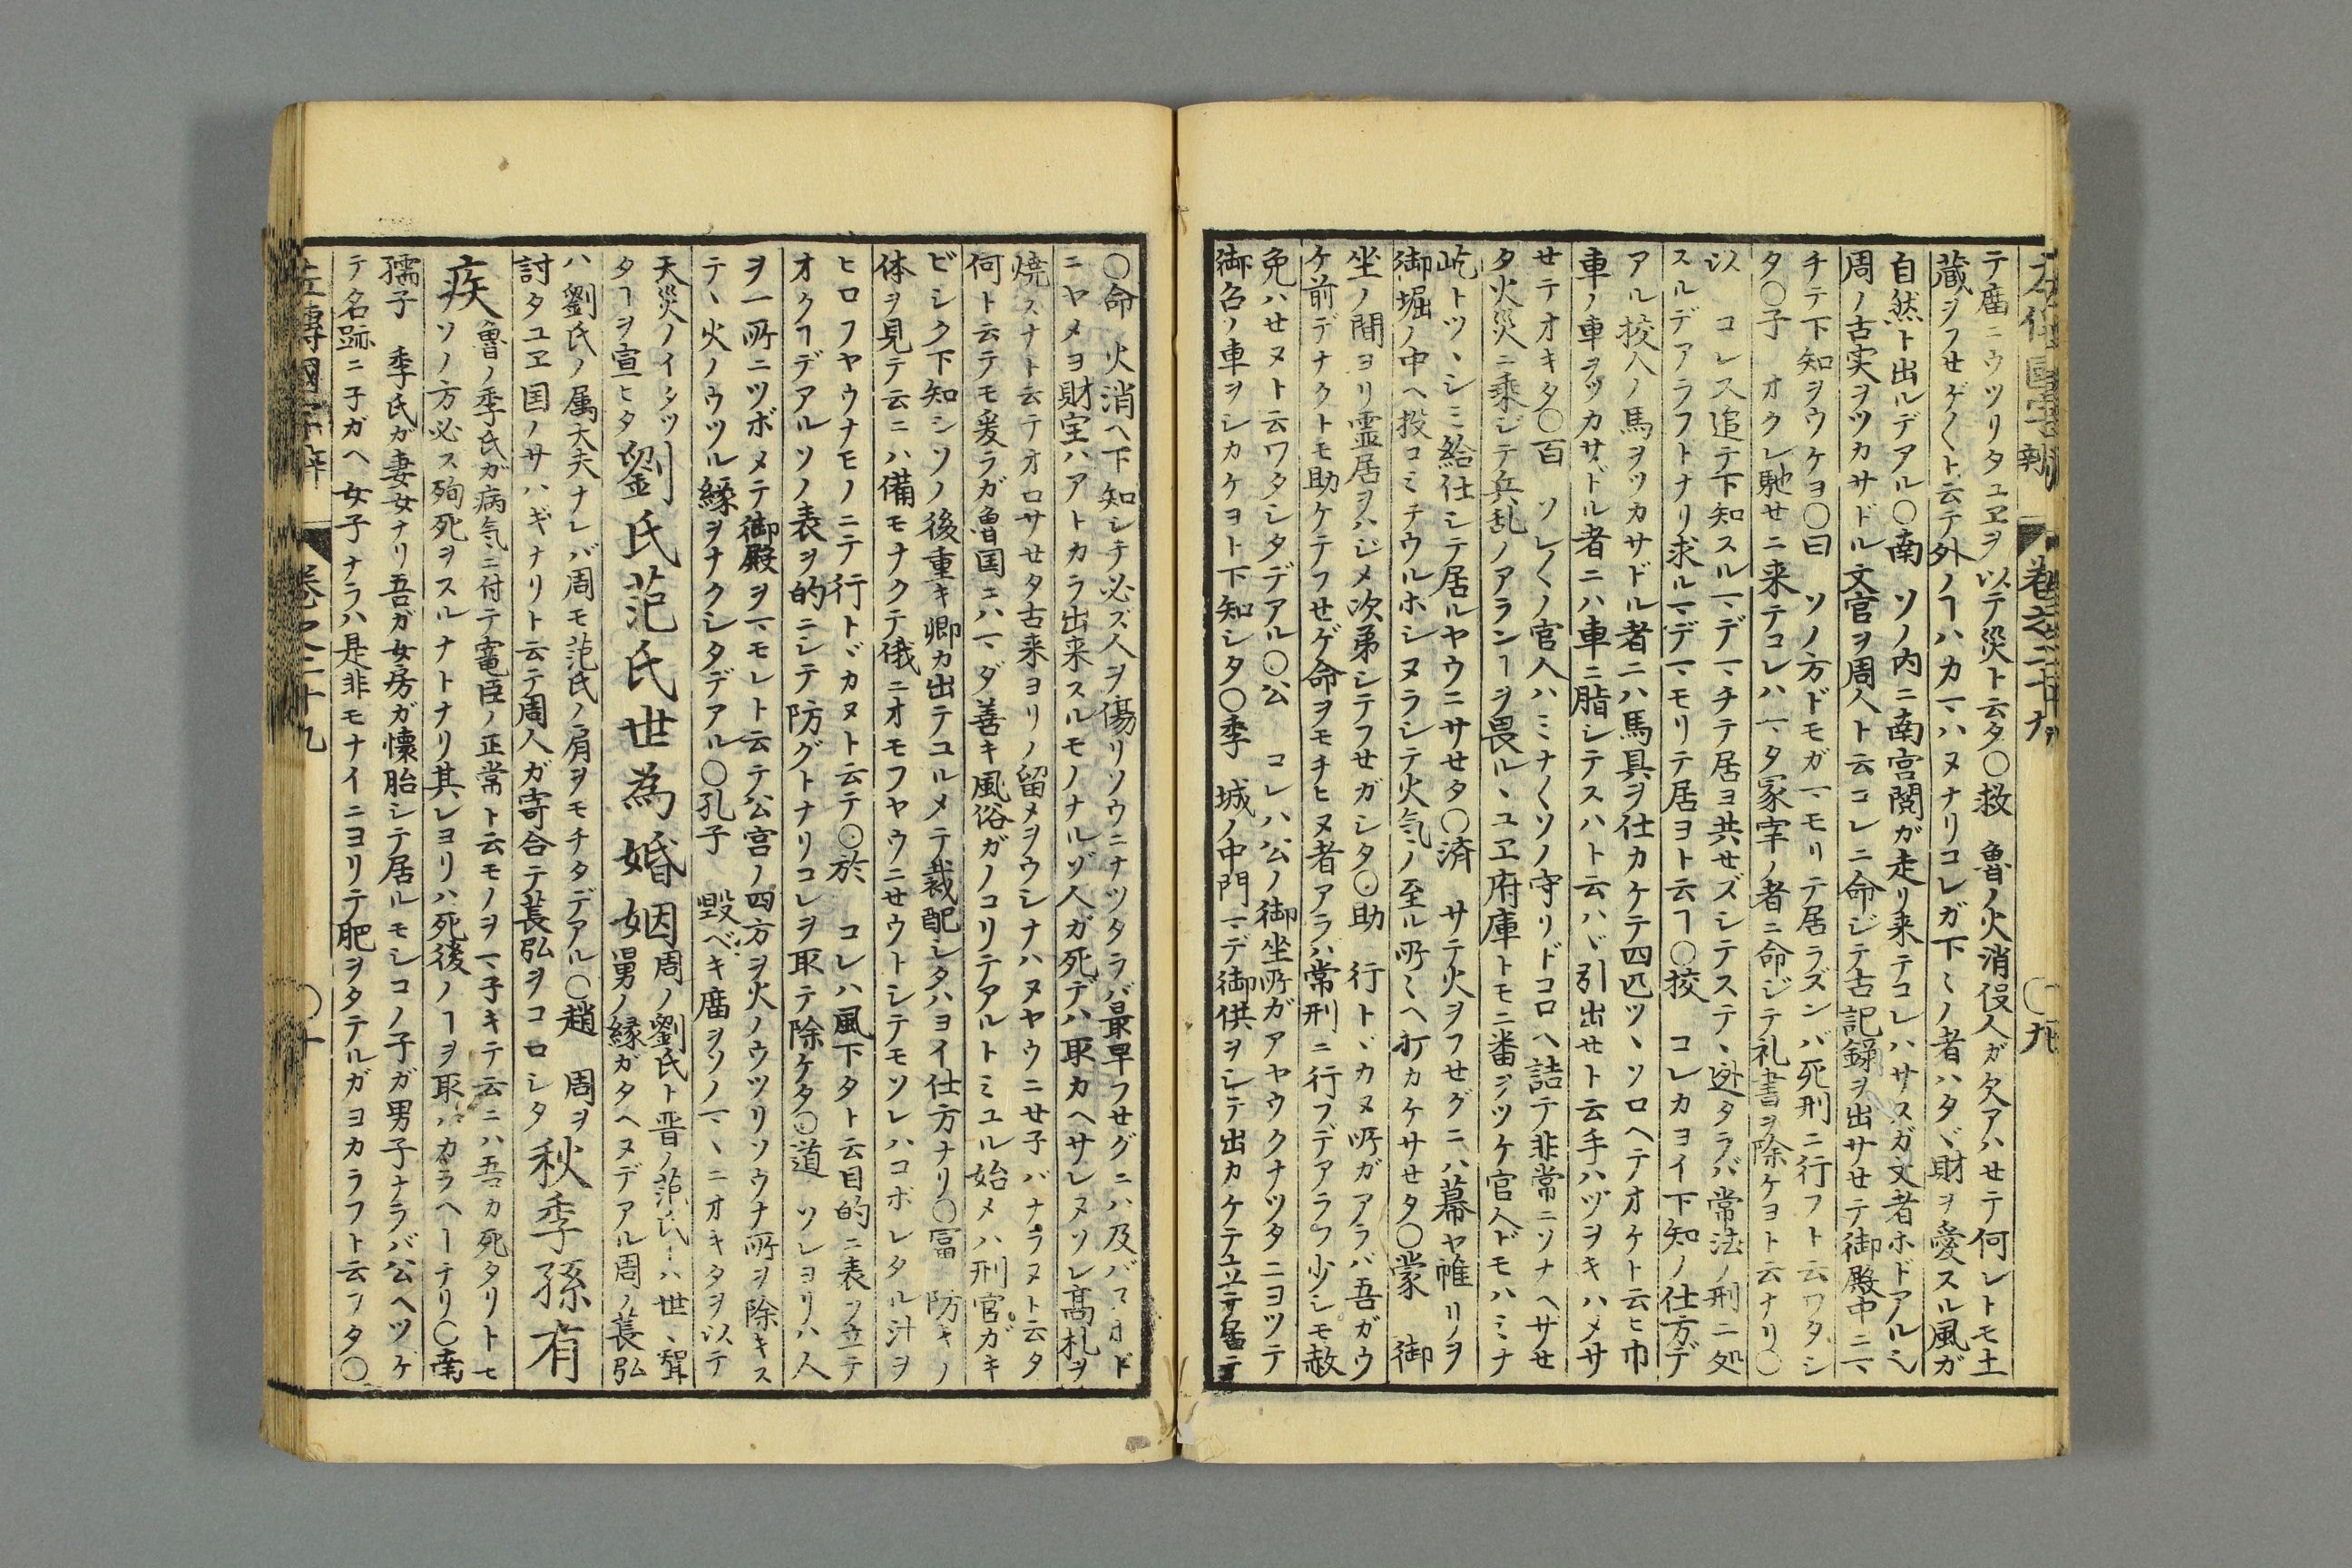 左傳國字辯 巻之二十九 〇九
テ廇ニウツリタユヱヲ以テ災ト云タ〇救 魯ノ火消役人ガ欠アハせテ何レトモ土
蔵ヲフせゲ〳〵ト云テ外ノヿハカマハヌナリコレガ下〻ノ者ハタヾ財ヲ愛スル風ガ
自然ト出ルデアル〇南 ソノ内ニ南宮閲ガ走リ来テコレハサスガ文者ホドアルシ
周ノ古実ヲツカサドル文官ヲ周人ト云コレニ命ジテ古記録ヲ出サせテ御殿中ニマ
チテ下知ヲウケヨ〇曰 ソノ方ドモガマモリテ居ラズンバ死刑ニ行フト云ワタシ
タ〇子 オクレ馳せニ来テコレハマタ冢宰ノ者ニ命ジテ礼書ヲ除ケヨト云ナリ〇
以 コレス追テ下知スルマデマチテ居ヨ共せズシテステヽ迯タラバ常法ノ刑ニ処
スルデアラフトナリ求ルマデマモリテ居ヨト云ヿ〇挍 コレカヨイ下知ノ仕方デ
アル挍人ノ馬ヲツカサドル者ニハ馬具ヲ仕カケテ四匹ツヽソロヘテオケト云ヒ巾
車ノ車ヲツカサドル者ニハ車ニ脂シテスハト云ハヾ引出せト云手ハヅヲキハメサ
せテオキタ〇百 ソレ〳〵ノ官人ハミナ〳〵ソノ守リドコロヘ詰テ非常ニソナヘザせ
タ火災ニ乘ジテ兵乱ノアランヿヲ畏ルヽユヱ府庫トモニ番ヲツケ官人ドモハミナ
屹トツヽシミ給仕シテ居ルヤウニサせタ〇済 サテ火ヲフせグニハ幕ヤ帷リヲ
御堀ノ中ヘ投コミチウルホシヌラシテ火気ノ至ル所〻ヘ打カケサせタ〇蒙 御
坐ノ間ヨリ霊居ヲハジメ次第シテフせガシタ〇助 行トヾカヌ所ガアラバ吾ガウ
ケ前デナクトモ助ケテフせゲ命ヲモチヒヌ者アラハ常刑ニ行フデアラフ少シモ赦
免ハせヌト云ワタシタデアル〇公 コレハ公ノ御坐所ガアヤウクナツタニヨツテ
御召ノ車ヲシカケヨト下知シタ〇季 城ノ中門マデ御供ヲシテ出カケテ立テ居テ
〇命 火消ヘ下知シテ必ズ人ヲ傷リソウニナツタラバ最早フせグニハ及バマホド
ニヤメヨ財宝ハアトカラ出来スルモノナルゾ人ガ死デハ取カヘサレヌソレ高札ヲ
焼スナト云テオロサせタ古来ヨリノ留メヲウシナハヌヤウニせ子バナラヌト云タ
何ト云テモ爰ラガ魯国ニハマダ善キ風俗ガノコリテアルトミユル始メハ刑官ガキ
ビシク下知シソノ後重キ卿カ出テコルメテ裁配シタハヨイ仕方ナリ〇冨 防キノ
体ヲ見テ云ニハ備モナクテ俄ニオモフヤウニせウトシテモソレハコボレタル汁ヲ
ヒロフヤウナモノニテ行トヾカヌト云テ〇於 コレハ風下タト云目的ニ表ヲ立テ
オクヿデアルソノ表ヲ的ニシテ防グトナリコレヲ取テ除ケタ〇道 ソレヨリハ人
ヲ一所ニツボメテ御殿ヲマモレト云テ公宮ノ四方ヲ火ノウツリソウナ所ヲ除キス
テヽ火ノウツル縁ヲナクシタデアル〇孔子 毀ベキ廇ヲソノマヽニオキタヲ以テ
天災ノイタッ
タヿヲ宣ヒタ 劉氏范氏世為婚姻 周ノ劉氏ト晋ノ范氏トハ世〻聟
舅ノ縁ガタヘヌデアル周ノ萇弘
ハ劉氏ノ属大夫ナレバ周モ范氏ノ肩ヲモチタデアル〇趙 周ヲ
討タユヱ国ノサハギナリト云テ周人ガ寄合テ萇弘ヲコロシタ 秋季孫有
疾 魯ノ季氏ガ病気ニ付テ竃臣ノ正常ト云モノヲマ子キテ云ニハ吾カ死タリトモ
ソノ方必ス殉死ヲスルナトナリ其レヨリハ死後ノヿヲ取ハカラヘーテリ〇南
孺子 季氏ガ妻女ナリ吾ガ女房ガ懐胎シテ居ルモシコノ子ガ男子ナラバ公ヘツゲ
テ名跡ニ子ガヘ女子ナラハ是非モナイニヨリテ肥ヲタテルガヨカラフト云フタ〇
左傳國字辯 巻之二十九 〇十